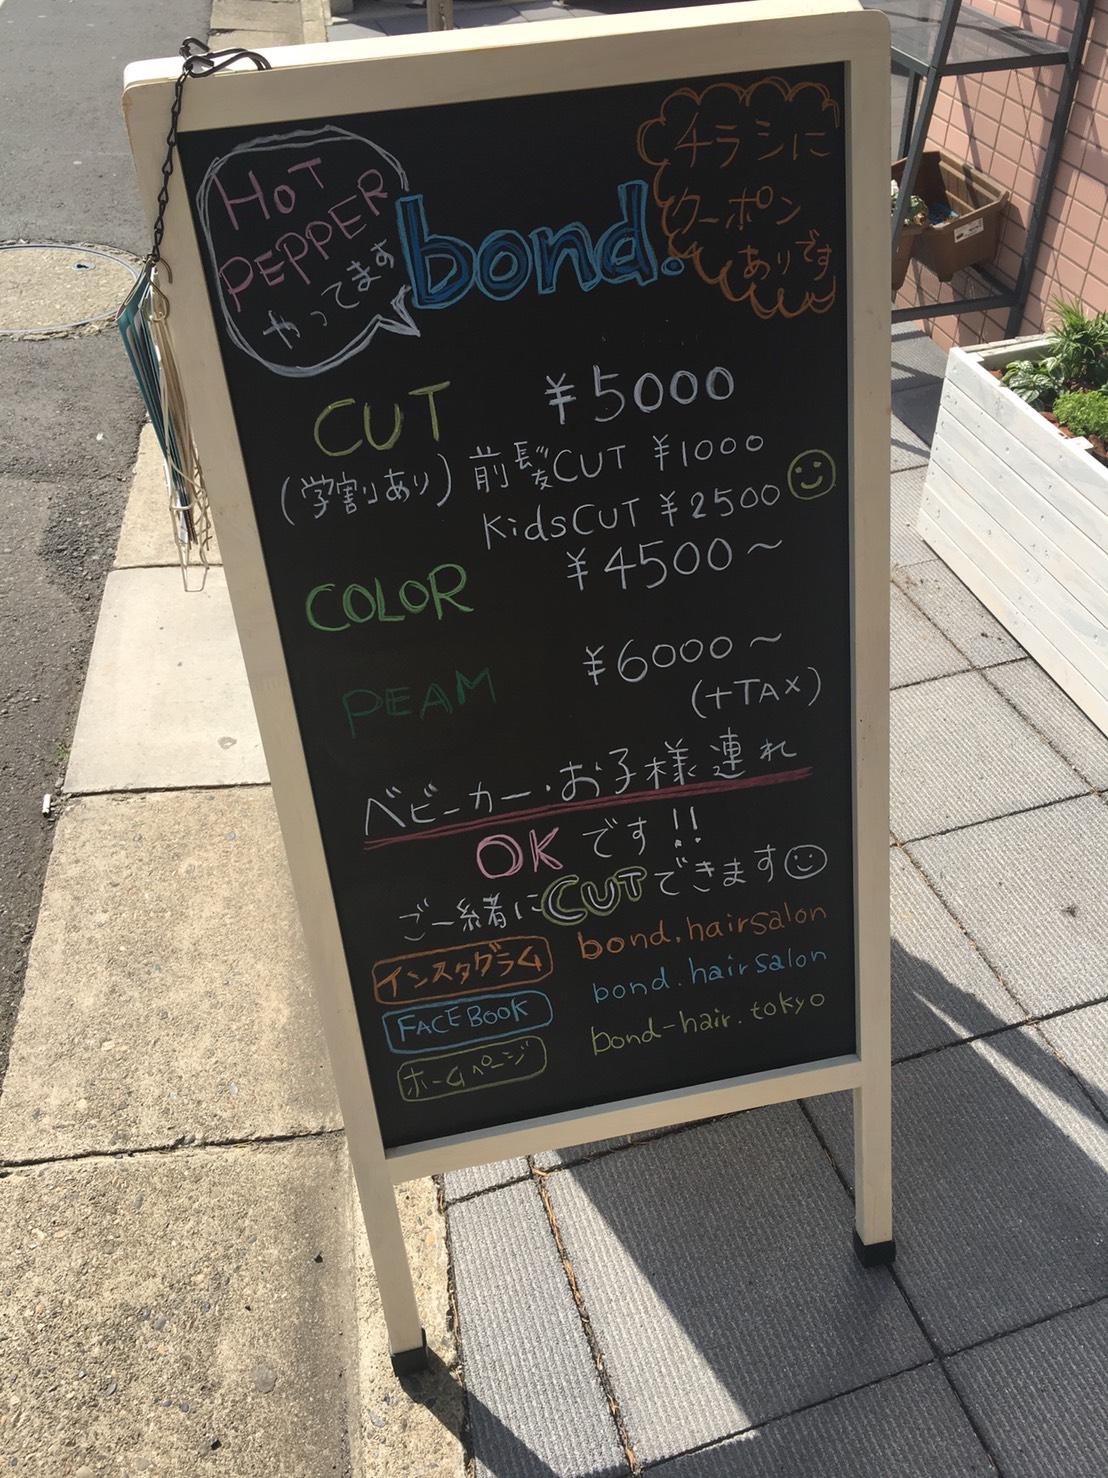 HOT
PEPPER
やってます
bond.
チラシに
クーポン
ありです
CUT ¥5000
(学割あり) 前髪CUT ¥1000
KidsCUT ¥2500
COLOR ¥4500～
PEAM ¥6000～
(+TAX)
ベビーカー・お子様連れ
OKです!!
ご一緒にCUTできます
インスタグラム bond.hairsalon
FACEBOOK bond.hairsalon
ホームページ bond-hair.tokyo